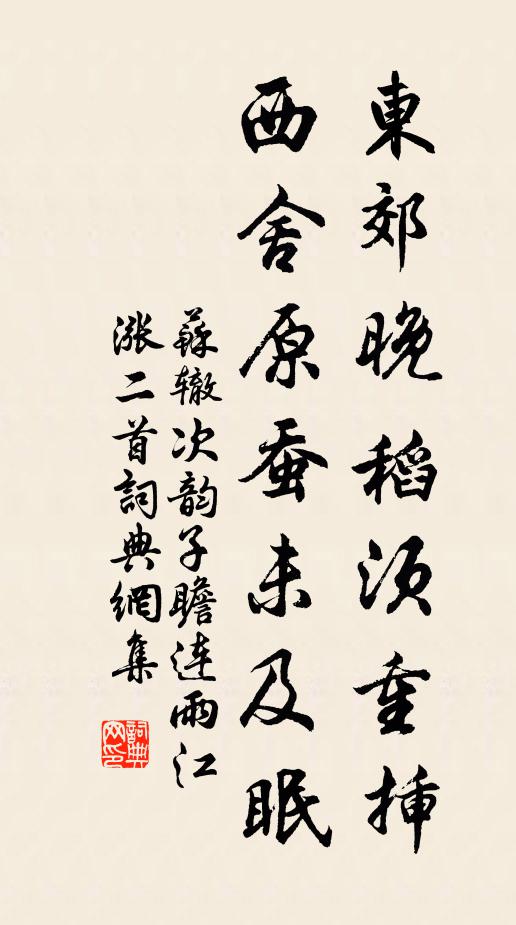 東郊晚稻須重插
西舍原蚕未及眠
蘇辙次韵子瞻連雨江
漲二首詞典網集
詞典網印